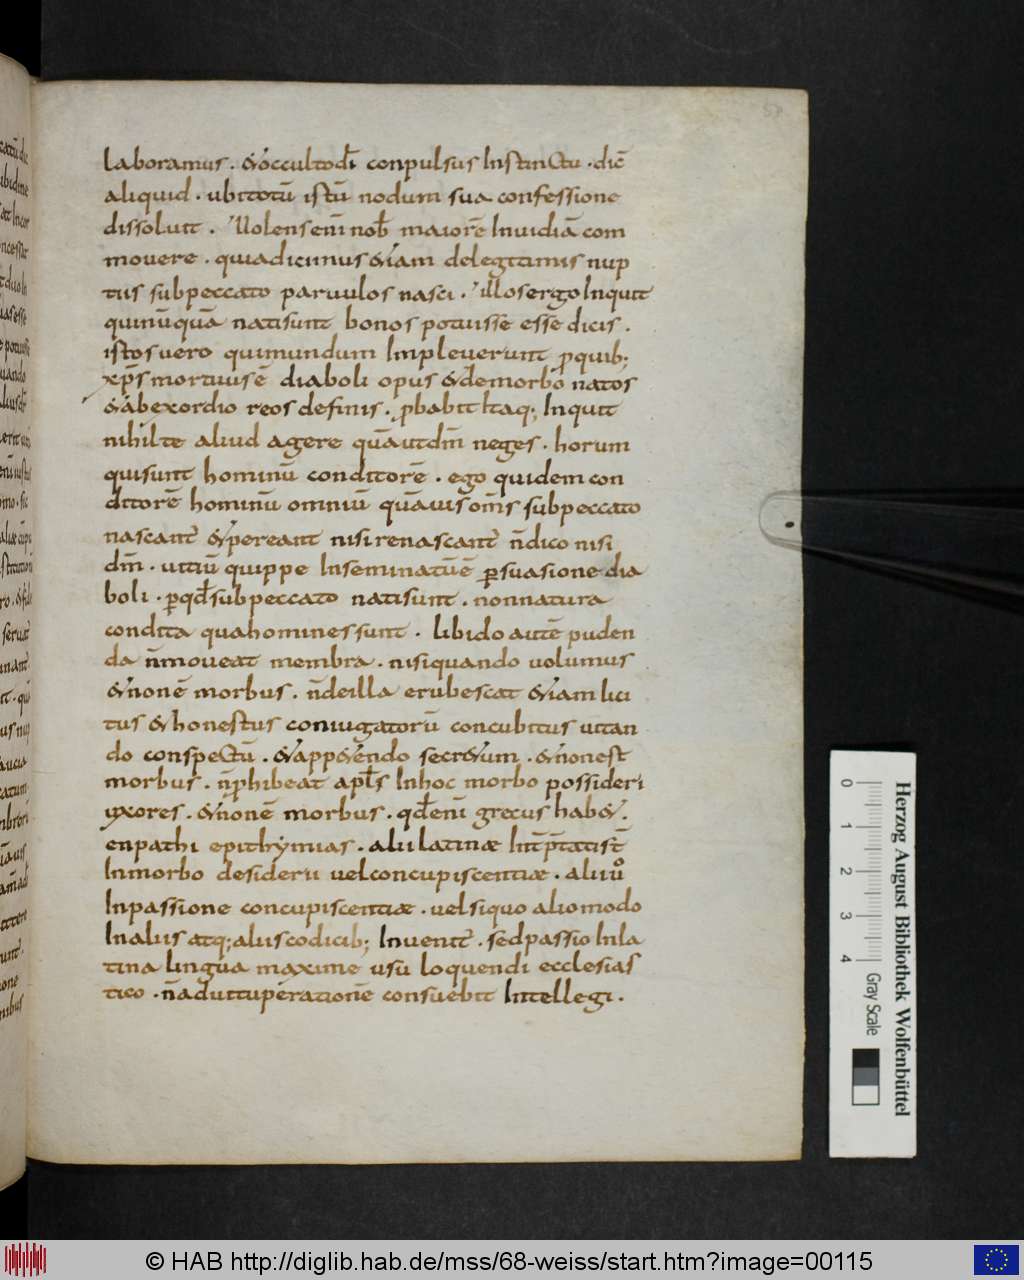 laboramus . & occulto dī conpulsus Instinctu . dic̄
aliquid . ubi totū istū nodum sua confessione
dissoluit . Nolens enī nob̄ maiorē Inuidiā com
mouere . quia dicimus & iam de legitimis nup
tiis sub peccato paruulos nasci . Illos ergo Inquit
qui nūquā nati sunt bonos potuisse esse dicis .
istos uero qui mundum Impleuerunt ꝓ quib;
xp̄s mortuus ē diaboli opus & de morbo natos
& ab exordio reos definis . ꝓbabit Itaq; Inquit
nihil te aliud agere quā ut dm̄ neges . horum
qui sunt hominū conditorē . ego quidem con
ditorē hominū omniū quāuis om̄s sub peccato
nascant̄ & pereant nisi renascant̄ n̄ dico nisi
dm̄ . uitiū quippe Inseminatū ē ꝑsuasione dia
boli . ꝑ qd̄ sub peccato nati sunt . non natura
condita qua homines sunt . libido autē puden
da n̄ moueat membra . nisi quando uolumus
& non ē morbus . n̄ de illa erubescat & iam lici
tus & honestus coniugatorū concubitus uitan
do conspectū . & app&endo secr&um . & non est
morbus . n̄ ꝓhibeat apl̄s In hoc morbo possideri
uxores . & non ē morbus . qd̄ enī grecus hab& .
en pathi epithymias . alii latinæ Int̄p̄tati st̄
In morbo desiderii uel concupiscentiæ . alii ů
In passione concupiscentiæ . uel si quo alio modo
In aliis atq; aliis codicib; Inuenit̄ . sed passio In la
tina lingua maxime usū loquendi ecclesias
tico . n̄ ad uituperationē consuebit Intellegi .
Herzog August Bibliothek Wolfenbüttel
0 1 2 3 4 Gray Scale
© HAB http://diglib.hab.de/mss/68-weiss/start.htm?image=00115